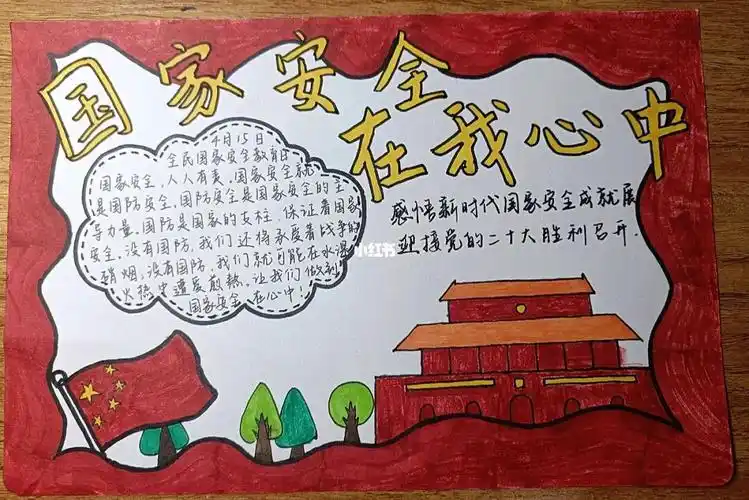 国家安全
在我心中
4月15日
全民国家安全教育日
国家安全,人人有责,国家安全就
是国防安全,国防安全是国家安全的主
导力量,国防是国家的支柱,保证着国家
安全,没有国防,我们还将承受着战争的
硝烟,没有国防,我们就可能在水深
火热中遭爱敌熬,让我们做到
国家安全 在心中!
感悟新时代国家安全成就展
迎接党的二十大胜利召开.
小红书